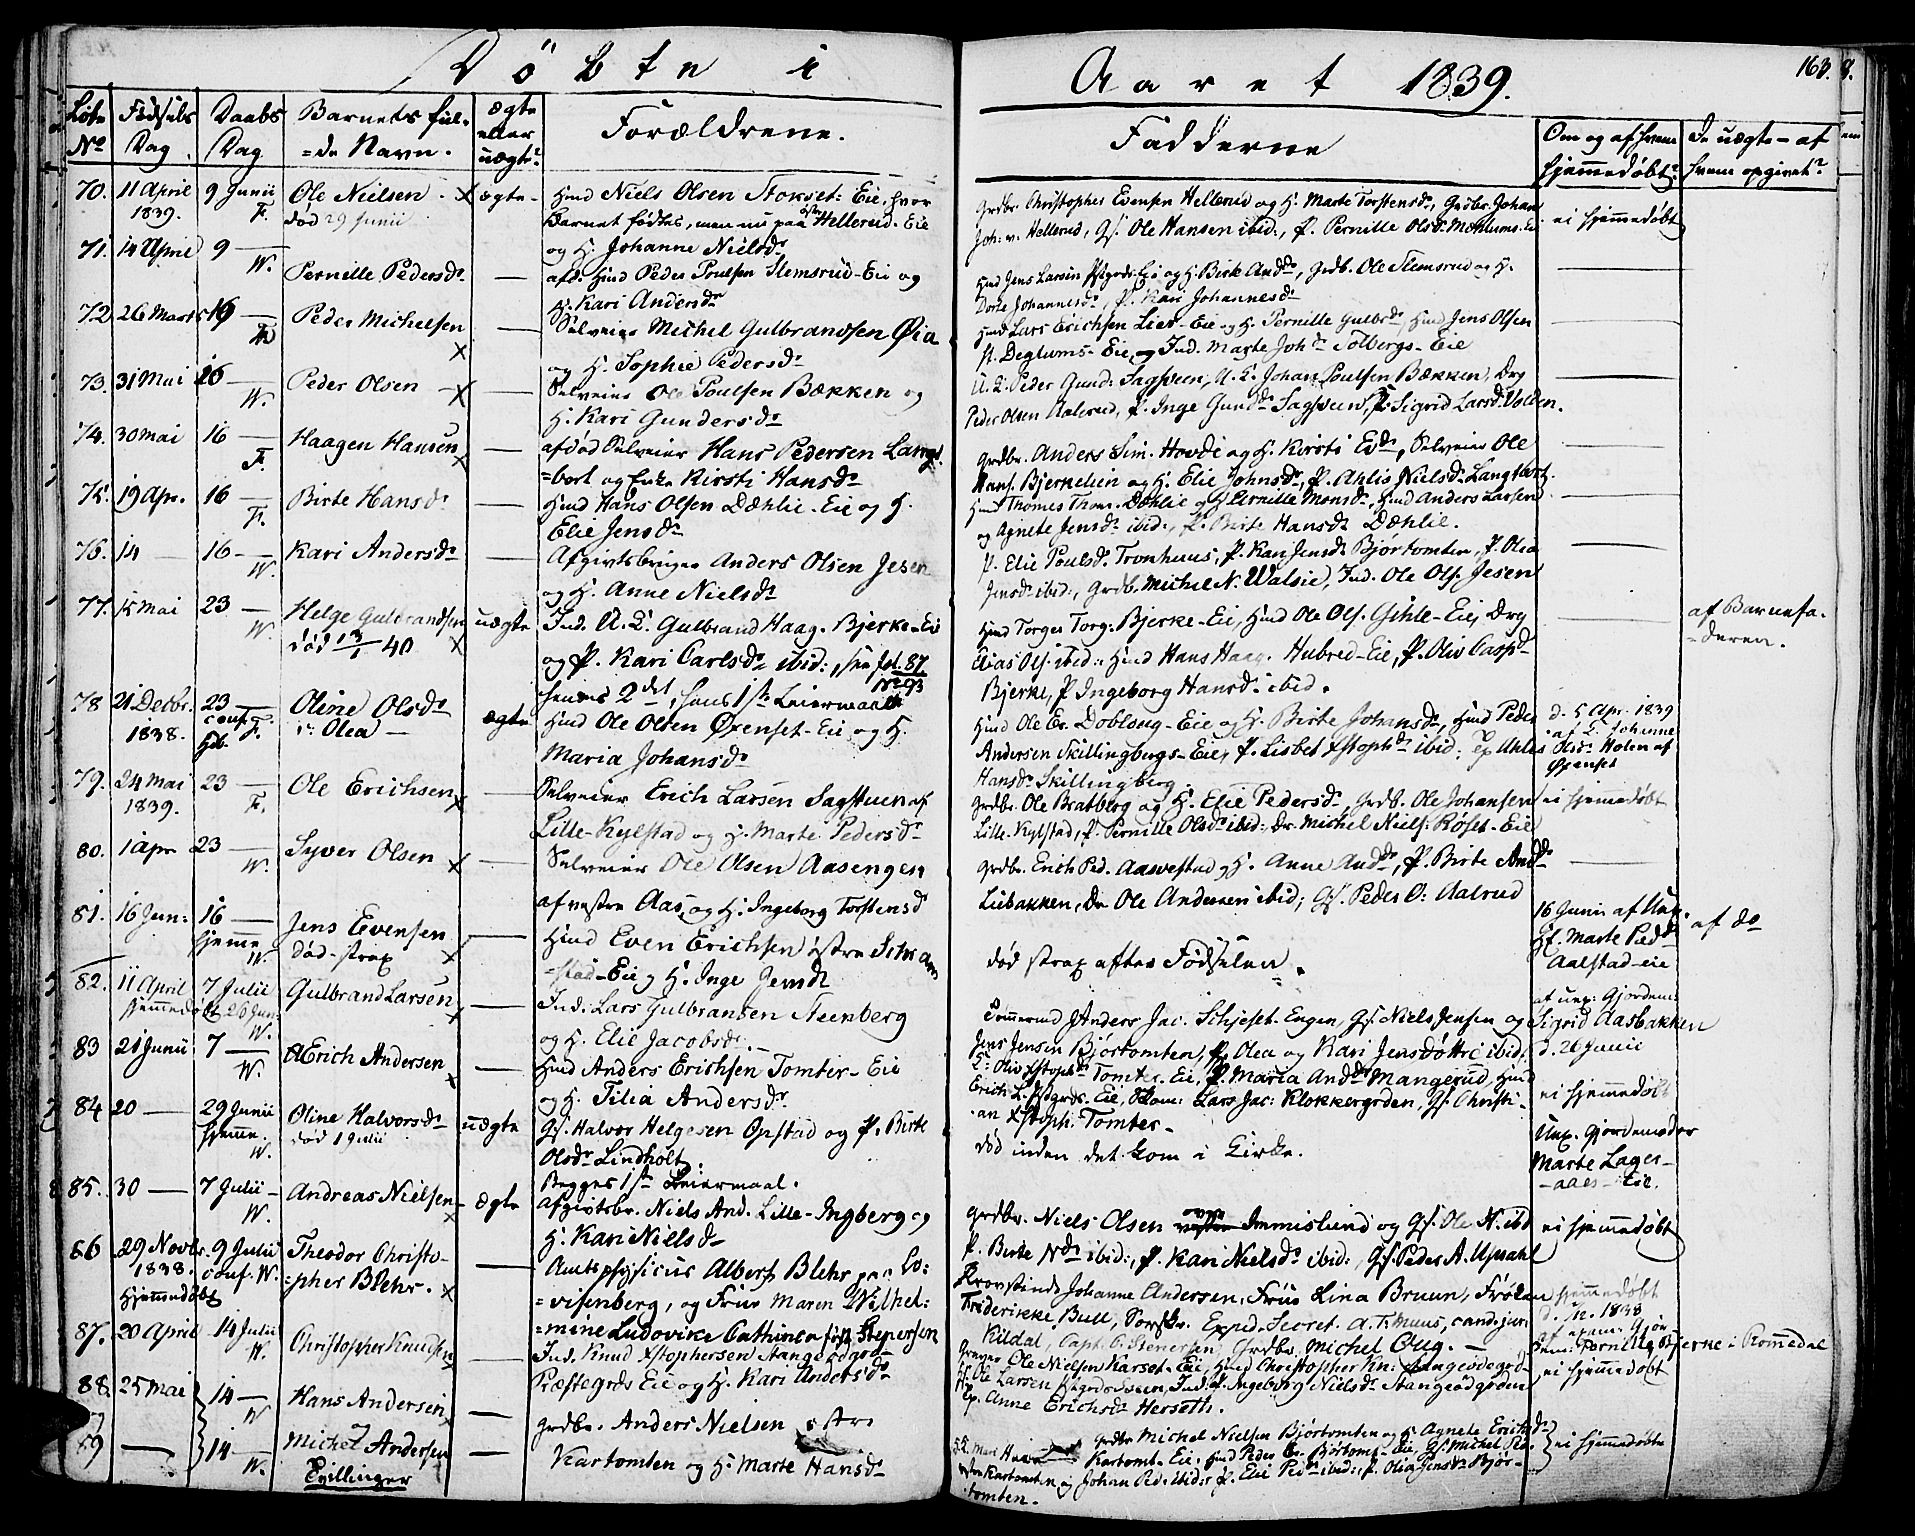 Döbte i
Aaret 1839.
163.
Löbe No
Födsels Dag
Daabs Dag
Barnets ful=
=de Navn.
ægte eller uægte?
Forældrene.
Fadderne
Om og af hvem hjemmedöbt?
De uægte - af hvem opgivet?
70. 11 April 1839. 9 Junii F. Ole Nielsen - x ægte -
död 29 Junii
Hmd Niels Olsen Stokset: Eie, hvor
Barnet födtes, men nu paa Hellerud-Eie
og H. Johanne Nielsdr
Grdbr. Christopher Evensen Hellerud og H. Marte Torstensdr, Grdbr. Johan
Joh: v. Hellerud, Gs. Ole Hansen ibid:, P. Pernille Olsdr Mæhlums-Eie
ei hjemmedöbt
71. 14 April 9 — W. Pernille Pedersdr —
afd. Hmd Peder Poulsen Stemsrud-Eie og
H. Kari Andersdr
Hmd Jens Larsen Pstgrds-Eie og H. Birte Anddr, Grdb. Ole Stemsrud og H.
Dorte Johannesdr, P. Kari Johannesdr
72. 26 Marts 16 — Peder Michelsen x —
Selveier Michel Gulbrandsen Öia
og H. Sophie Pedersdr
Hmd Lars Erichsen Lier-Eie og H. Pernille Gulbrdr, Hmd Jens Olsen
st. Deglums-Eie, og Ind. Marte Johdr Tolbergs-Eie
73. 31 Mai 16 — W. Peder Olsen - x —
Selveier Ole Poulsen Bækken og
H. Kari Gundersdr
U.K. Peder Gund: Sagsveen, U.K. Johan Poulsen Bækken, Drg
Peder Olsen Aalerud, P. Inge Gunddr Sagsveen, P. Sigrid Larsdr Volden.
74. 30 Mai 16 — F. Haagen Hansen x —
afdöd Selveier Hans Pedersen Lang=
=bort og Enke Kirsti Hansdr
Grdbr. Anders Sim. Hovde og H. Kirsti Edr, Selveier Ole
Hans. Bjernelien og H. Elie Johnsdr, P. Ahlis Nielsdr Langbort.
75. 19 Apr. 16 — F. Birte Hansdr —
Hmd Hans Olsen Dæhlie-Eie og H.
Elie Jensdr
Hmd Thomes Thom. Dæhlie og H. Pernille Monsdr, Hmd Anders Larsen
og Agnete Jensdr ibid:, P. Birte Hansdr Dæhlie.
76. 14 — 16 — W. Kari Andersdr —
Afgivtsbruger Anders Olsen Jesen
og H. Anne Nielsdr
P. Elie Poulsdr Tronhuus, P. Kari Jensdr Björtomten, P. Olea
Jensdr ibid:, Grdb. Michel N. Walsie, Ind. Ole Ols. Jesen
77. 15 Mai 23 — W. Helge Gulbrandsen x uægte
död 13/1 40
Ind. U.K. Gulbrand Haag. Bjerke-Eie
og P. Kari Carlsdr ibid:, see fol. 87
No 93
hendes 2det, hans 1ste Leiermaal
Hmd Torger Torg: Bjerke-Eie, Hmd Ole Ols. Gihle-Eie, Drg
Elias Ols. ibid:, Hmd Hans Haag. Hubred-Eie, P. Oliv Caspdr
Bjerke, P. Ingeborg Hansdr ibid.
af Barnefa-
-deren.
78 21 Decbr. 1838. 23 — conf. F. Hdb. Oline Olsdr
v: Olea — ægte
Hmd Ole Olsen Öxenset-Eie og H.
Maria Johansdr
Hmd Ole Er. Doblong-Eie og H. Birte Johansdr, Hmd Peder
Andersen Skillingbergs-Eie, P. Lisbet Xstophdr ibid:, Ep. Ahlis
Hansdr Skillingberg
d. 5 Apr. 1839
af L. Johanne
Holen af
Öxenset
79. 24 Mai 1839. 23 — F. Ole Erichsen x —
Selveier Erich Larsen Sagstuen af
Lille-Kylstad og H. Marte Pedersdr
Grdbr. Ole Bratberg og H. Elie Pedersdr, Grdb. Ole Johansen
Lille-Kylstad, P. Pernille Olsdr ibid:, Dr. Michel Niels. Röset-Eie
ei hjemmedöbt
80. 1 Apr 23 — W. Syver Olsen x —
Selveier Ole Olsen Aasengen
af vestre Aas, og H. Ingeborg Torstensd
Grdbr. Erich Ped. Aasvestad og H. Anne Anddr, P. Birte Anddr
Liebakken, Dr Ole Andersen ibid; Gs. Peder O: Aalrud
81. 16 Jun: 16 — hjemme W. Jens Evensen x —
död strax
Hmd Even Erichsen östre Schram
=stad-Eie og H. Inge Jensdr
död strax efter Födselen.
16 Junii af Uex.
Hf. Marte Peddr
Aalstad-eie
af do
82. 11 April 7 Julii hjemmedöbt 26 Jun. W. Gulbrand Larsen x —
Ind: Lars Gulbransen Steenberg
og H. Elie Jacobsdr. —
Anders Jac. Schjeset-Engen, Gs. Niels Jensen og
Jens Jensen Björtomten, P. Olea og Kari Jensdöttre ibid:
af uex: Gjordem:
Sigrid Aasbakken
d. 26 Junii
83 21 Junii 7 — W. Erich Andersen x —
Hmd Anders Erichsen Tomter-Eie
og H. Tilia Andersdr.
L: Oliv Xstophdr Tomter-Eie, P. Maria Anddr Mangerud, Hmd
Erich L. Pstgrds-Eie, Lars Jac: Klokkergrden, Gs. Christi-
-an Xstoph: Tomter-
ei hjemmedöbt
84 20 — 29 Junii hjemme. W. Oline Halvorsdr uægte
död 1 Julii
Gs. Halvor Helgesen Opstad og P. Birte
Olsdr Lindholt.
Begges 1ste Leiermaal.
död inden det kom i Kirke.
Uex. Gjordemoder
Marte Lager-
-aaes-Eie.
85. 30 — 7 Julii - W. Andreas Nielsen x ægte
Afgivtsbr. Niels And. Lille-Ingberg og
H. Kari Nielsdr
Grdbr. Niels Olsen Immislund og Gs. Ole N. ibd
P. Birte Ndr ibid:, P. Kari Nielsdr ibid:, Gs. Peder A. Upsahl
ei hjemmedöbt
86 29 Novbr. 1838. Hjemmedöbt 9 Julii conf. W. Theodor Christo-
=pher Blehr. x —
Amtsphysicus Albert Blehr paa Lo:
=visenberg, og Frue Maren Wilhel:
=mine Ludovike Cathinca föd Stenersen
Provstinde Johanne Andersen, Frue Lina Bruun, Fröken
Friderikke Bull, Exped. Secret. A. T. Muus, cand. jur:
Kildal, Capt. O. Stenersen, Grdbr. Michel Oug. —
hjemmedöbt
1838
Pernille Bjerke i Romedal
87. 20 April 14 Julii W. Christopher Knudsen —
Ind. Knud Xstophersen Stange
Præstegrds Eie og H. Kari Andersdr
Ole Nielsen Karset-Eie, Hmd Christopher Kn: Stangeödegrd
Ole Larsen Ind: P. Ingeborg Nielsdr Stangeödgrden
Ep. Anne Erichsdr Herseth.
ei hjemmedöbt
88. 25 Mai 14 — W Hans Andersen x —
89 — 14 — W. Michel Andersen —
Tvillinger
Grdbr. Anders Nielsen östre
Kartomten og H. Marte Hansdr
Grdbr Michel Nielsen Björtomten og H. Agnete Erichsdr
Kartomt-Eie, Hmd Peder Er. Björtomt-Eie, Gs. Michel Pe-
Kartomten og Johan Ped. ibid:, P. Elie Peddr ibid:, P. Olia Jensdr Björ-
tomten.
ei hjemmedöbte